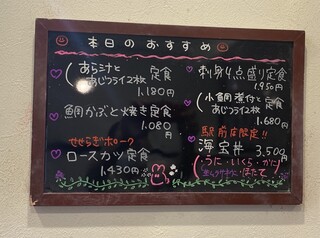 本日のおすすめ
あら汁と
あじフライ2枚 定食
1,180円
鯛かぶと焼き定食
1,080円
せせらぎポーク
ロースカツ定食
1,430円
刺身4点盛り定食
1,950円
小鯛煮付と
あじフライ2枚 定食
1,680円
駅前店限定!!
海宝丼 3,500円
うに・いくら・かに
ほたて